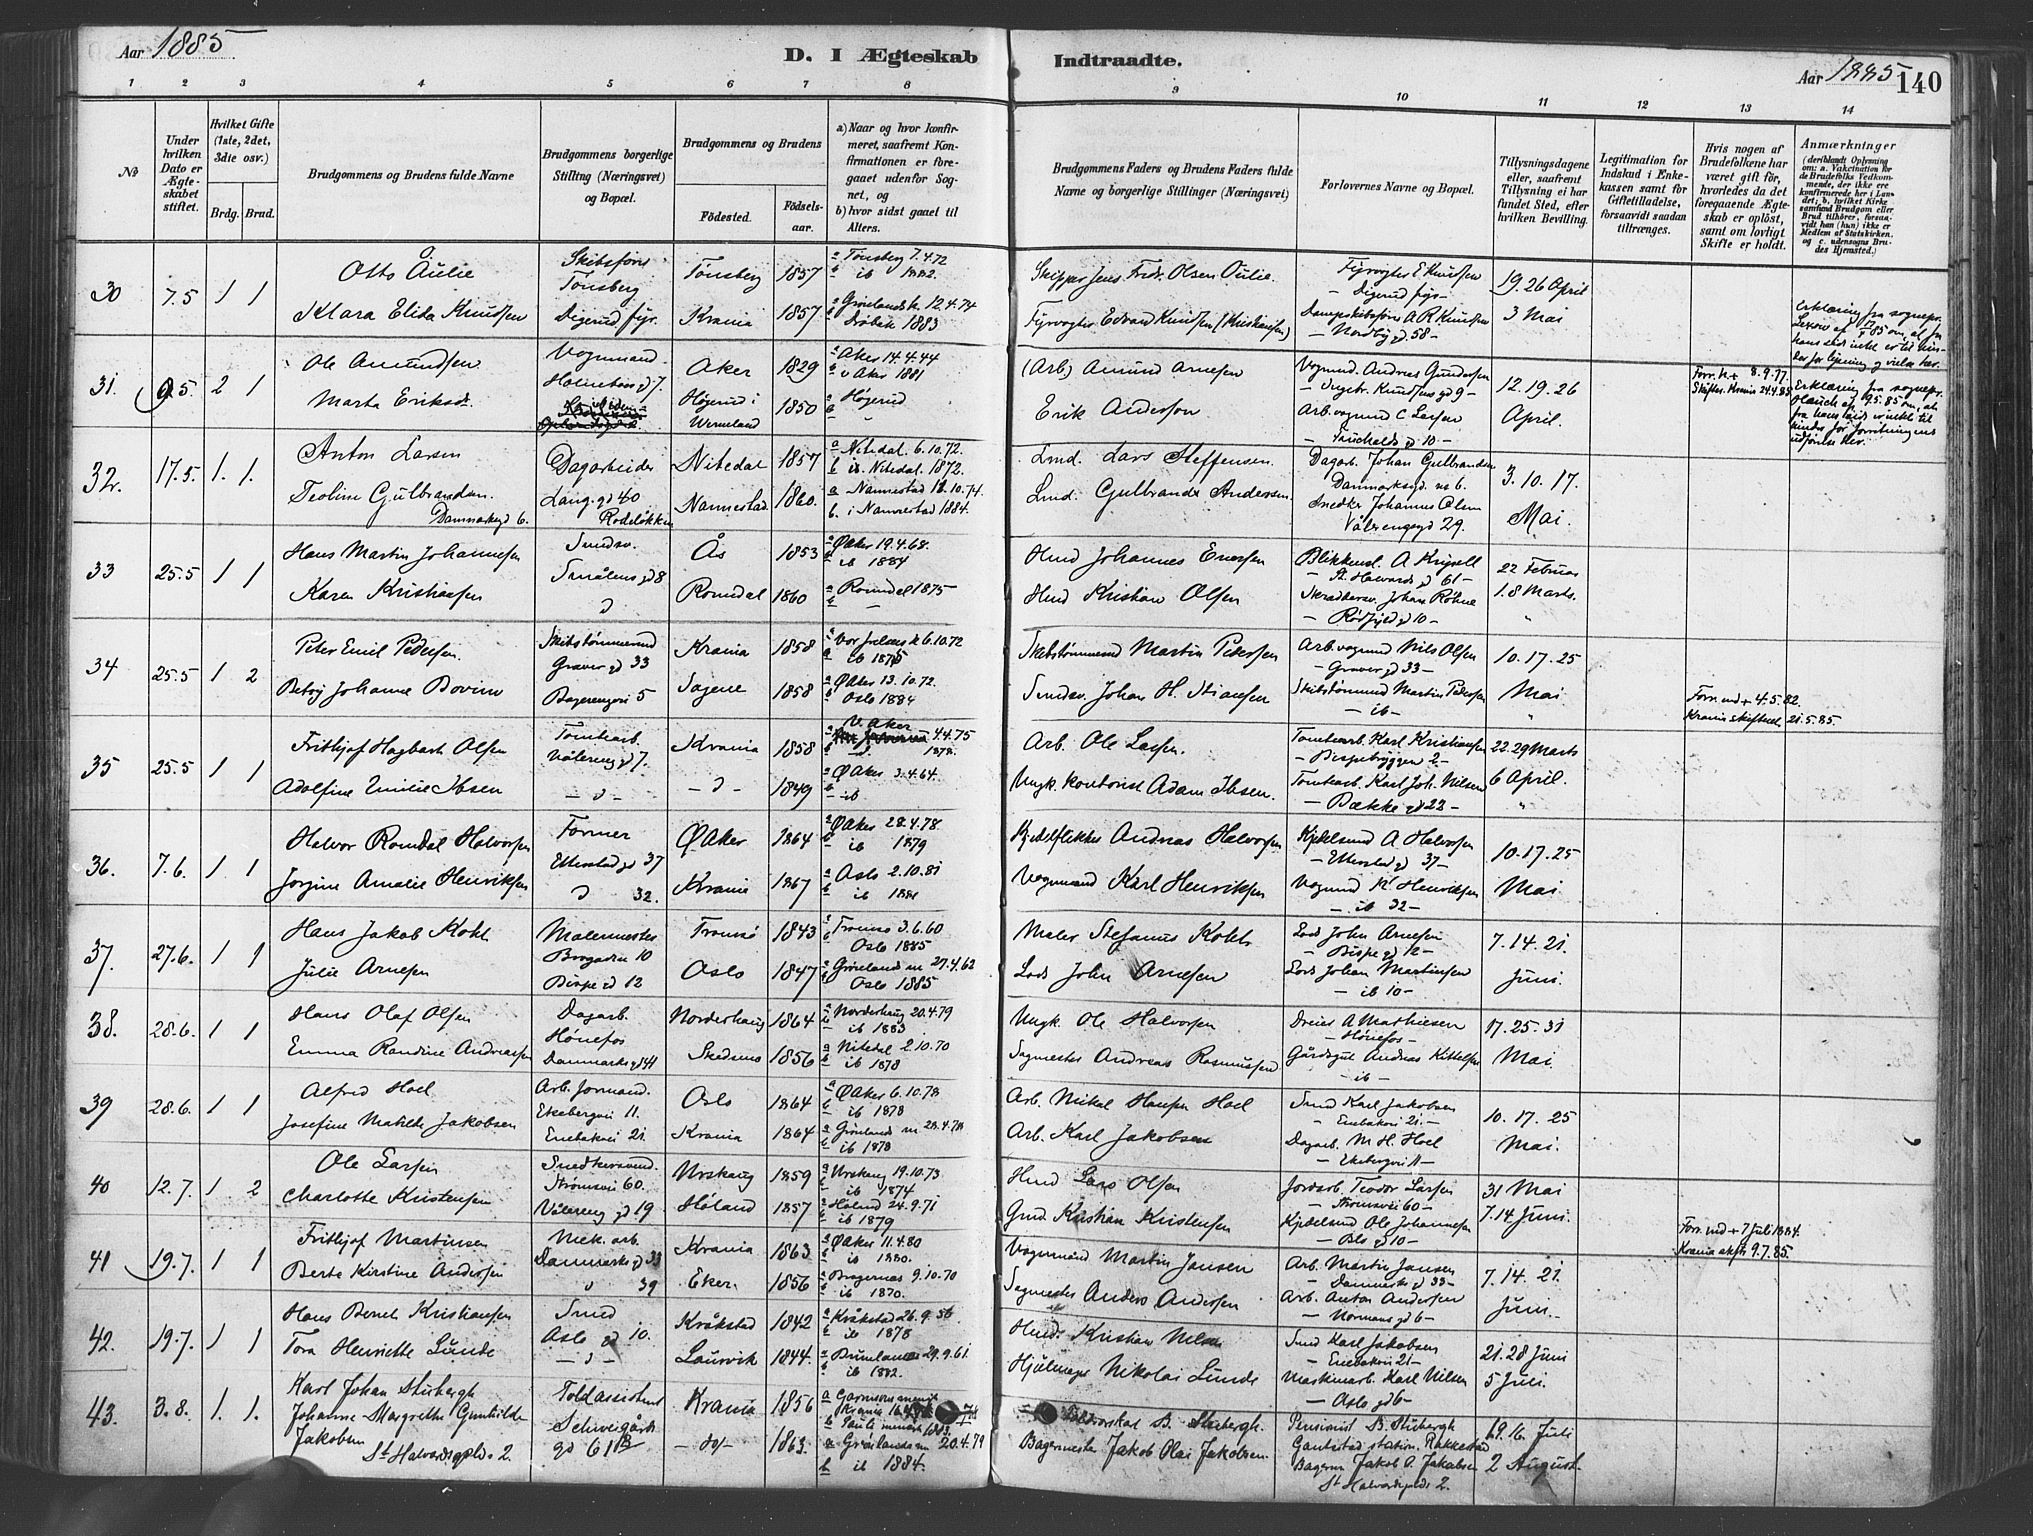 Aar 1885
D. I Ægteskab Indtraadte.
Aar 1885 140
1 2 3 4 5 6 7 8 9 10 11 12 13 14
No
Under hvilken Dato er Ægteskabet stiftet.
Hvilket Gifte (1ste, 2det, 3die osv.)
Brdg. Brud.
Brudgommens og Brudens fulde Navne
Brudgommens borgerlige Stilling (Næringsvei) og Bopæl.
Brudgommens og Brudens
Födested.
Födselsaar.
a) Naar og hvor konfirmeret, saafremt Konfirmationen er foregaaet udenfor Sognet, og
b) hvor sidst gaaet til Alters.
Brudgommens Faders og Brudens Faders fulde Navne og borgerlige Stillinger (Næringsvei)
Forlovernes Navne og Bopæl.
Tillysningsdagene eller, saafremt Tillysning ei har fundet Sted, efter hvilken Bevilling.
Legitimation for Indskud i Enkekassen samt for Giftetilladelse, forsaavidt saadan tiltrænges.
Hvis nogen af Brudefolkene har været gift för, hvorledes da det foregaaende Ægteskab er oplöst, samt om lovligt Skifte er holdt.
Anmærkninger
(deriblandt Oplysning om: a. Vakcination for de Brudefolks Vedkommende, der ikke ere konfirmerede her i Landet; b. hvilket Kirkesamfund Brudgom eller Brud tilhörer, forsaavidt han (hun) ikke er Medlem af Statskirken, og c. udensogns Brudes Hjemsted.)
30 7.5 1 1
Otto Aulie
Klara Elida Knudsen
Tönsberg
Digerud fyr.
Tönsberg 1857
Krania 1857
a Tönsberg 7.4.72
b ib 1882.
a Grönlands k. 12.4.74
b Dröbak 1883
Skipper Jens Fredr. Olsen Aulie.
Fyrvogter Edvard Knudsen (Kristiansen)
Fyrvogter E Knudsen
– Digerud fyr –
Dampskibsförer A R Knudsen
– Nordby gd 58 –
19. 26 April
3 Mai
31 9.5 2 1
Ole Amundsen
Marta Eriksdr
Vognmand
Holmebo gd 7.
Aker 1829
Högerud i Vermeland 1850
a Aker 14.4.44
b v Aker 1881
a Högerud
(Arb) Amund Arnesen
Erik Anderson
Vogmd. Andreas Gundersen
Arb. vogmd C Larsen
12. 19. 26
April.
Forr. h + 8.9.77.
Skifter. Krania 24.4.85
32. 17.5. 1. 1.
Anton Larsen
Teoline Gulbrandsen.
Danmarksgd 6.
Dagarbeider
Lang. gd 40
Rodelökken
Nitedal 1857
Nannestad 1860.
a Nitedal 6.10.72.
b ib. Nitedal. 1872.
a Nannestad 11.10.74.
b. i Nannestad 1884.
Lmd. Lars Steffensen.
Lmd. Gulbrand Andersen.
Dagarb. Johan Gulbrandsen
Danmarksgd. no 6.
Snedker Johannes Olsen
Vålerenggd 29.
3. 10. 17.
Mai.
33 25.5 1 1
Hans Martin Johannesen
Karen Kristiansen
Smedsv.
Smålens gd 8
Ås 1853
Romedal 1860
a ØAker 19.4.68.
b ib 1884
a Romedal 1875
Hmd Johannes Enersen
Hmd Kristian Olsen
– St. Halvards gd 61 –
Skrædersv. Johan Röhne
– Rödfyld gd 10 –
22 Februar
1. 8 Marts.
34 25.5 1 2
Peter Emil Pedersen.
Betsy Johanne Bovim
Skibstömmermd
Graver gd 33
Bagerengvei 5
Krania 1858
Sagene 1858
a Vor frelsers k 6.10.72
b ib 1875
a ØAker 13.10.72.
b Oslo 1884
Skibstömmermd Martin Pedersen
Smedsv. Johan H. Stiansen
Arb. vogmd Nils Olsen
– Graver gd 33 –
Skibstömmermd Martin Pedersen
– ib –
10. 17. 25
Mai
Forr. md + 4.5.82.
Krania skifteret 21.5.85
35 25.5 1 1
Frithjof Hagbart Olsen
Adolfine Emilie Ibsen
Tomtearb.
Vålereng gd 7.
– d –
Krania 1858
– d – 1849
a V. Aker 4.4.75
b 1878.
a ØAker 3.4.64.
b ib
Arb. Ole Larsen.
Ungk. kontorist Adam Ibsen.
Tomtearb. Karl Kristiansen
– Bispebryggen 2 –
Tomtearb. Karl Joh. Nilsen
– Bække gd 22 –
22. 29 Marts
6 April.
36. 7.6. 1. 1
Halvor Romdal Halvorsen
Jorgine Amalie Henriksen
Former
Etterstad gd 37
d 32.
ØAker 1864
Krania 1867
a ØAker 28.4.78.
b ib 1879
a Oslo 2.10.81
b ib 1881
Kjedelflikker Andreas Halvorsen
Vognmand Karl Henriksen
Kjedelsmd A Halvorsen
– Etterstad gd 37 –
Vogmd Kl Henriksen
– ib 32 –
10. 17. 25
Mai
37. 27.6. 1 1
Hans Jakob Koht
Julie Arnesen
Malermester
Brogaden 10
Bispe gd 12
Tromsö 1843
Oslo 1847
a Tromsö 3.6.60
b Oslo 1885
a Grönland m 27.4.62
b Oslo 1885
Maler Stefanus Koht
Lods John Arnesen
Lods John Arnesen
– Bispe gd 12 –
Lods Johan Martinsen
– ib 10 –
7. 14. 21.
Juni.
38. 28.6. 1 1
Hans Olaf Olsen
Emma Randine Andreassen
Dagarb.
Hönefos
Danmarks gd 44
Norderhaug 1864
Skedsmo 1856
a Norderhaug 20.4.79
b ib 1883
a Nitedal 2.10.70
b ib 1878
Ungk. Ole Halvorsen
Sagmester Andreas Rasmussen
Dreier A Mathiesen
– Hönefos –
Gårdsgut Andreas Kittelsen
– ib –
17. 25. 31
Mai
39 28.6. 1 1
Alfred Hoel
Josefine Matilde Jakobsen
Arb. formand.
Ekebergvei 11.
Enebakvei 21.
Oslo 1864
Krania 1864
a ØAker 6.10.78
b ib 1878
a Grönland m 28.4.78
b ib 1878
Arb. Mikal Hansen Hoel
Arb. Karl Jakobsen
Smed Karl Jakobsen
– Enebakvei 21. –
Dagarb. M. H. Hoel
– Ekebergvei 11 –
10. 17. 25
Mai.
40 12.7. 1 2
Ole Larsen
Charlotte Kristensen
Snedkersvend.
Strömsvei 60.
Vålereng gd 19
Urskaug 1859
Höland 1857
a Urskaug 19.10.73
b ib 1874
a Höland 24.9.71
b ib 1879
Hmd Lars Olsen
Gmd. Kristian Kristensen
Jordarb. Teodor Larsen
– Strömsvei 60 –
Kjedelsmd Ole Johannesen
– Oslo gd 10 –
31 Mai
7. 14 Juni.
Forr. md + 7 Juli 1884.
Krania skftr 9.7.85.
41 19.7. 1 1
Frithjof Martinsen
Berte Kirstine Andersen
Mek. arb.
Danmarks gd 33
d 39
Krania 1863.
Eker 1856
a ØAker 11.4.80
b ib 1880.
a Bragernæs 9.10.70
b ib 1870.
Vognmand Martin Jansen
Sagmester Anders Andersen
Arb. Martin Jansen
– Danmarks gd 33 –
Arb. Anton Andersen
– Normans gd 6 –
7. 14. 21.
Juni.
42. 19.7. 1 1
Hans Bernt Kristiansen
Tora Henriette Lunde
Smed
Oslo gd 10.
– d –
Kråkstad 1842
Laurvik 1844.
a Kråkstad 26.9.56
b ib 1878
29.9.61
b ib 1882.
Hmd. Kristian Nilsen
Nikolai Lunde
Smed Karl Jakobsen
– Enebakvei 21 –
Maskinarb. Karl Nilsen
– Oslo gd 6 –
21. 28 Juni
5 Juli.
43. 3.8. 1. 1.
Karl Johan Stubergh
Johanne Margrethe Gunhilde
Jakobsen
St Halvardsgplds 2.
Toldassistent
Schweigårds
gd 61 B
Krania 1856
– do – 1863.
a Garnisons menih
b Pauli menih 1883.
a Grönlands m 20.4.79
b ib 1884.
B. Stubergh.
Bagermester Jakob Olai Jakobsen.
Pensionist B. Stubergh
station. Rakkestad
Bagerm Jakob O. Jakobsen
St Halvardsplds 2.
19. 16. Juli
2 August.